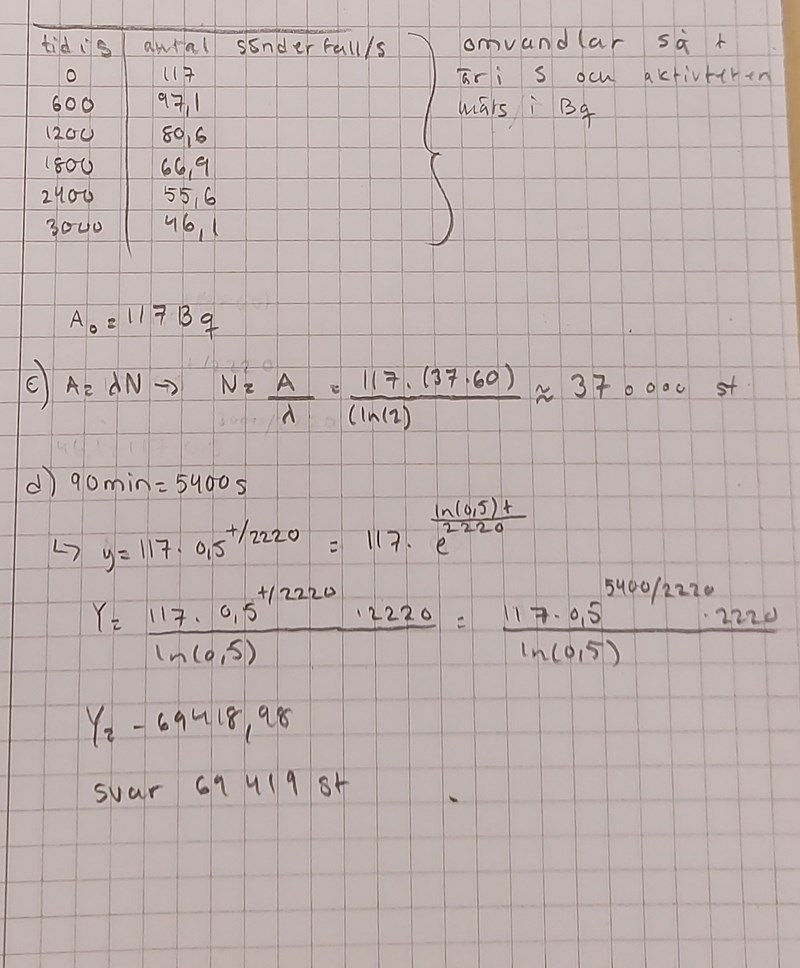 tid i s antal sönderfall/s
0 117
600 97,1
1200 80,6
1800 66,9
2400 55,6
3000 46,1
omvandlar så t
är i s och aktivteten
märs i Bq
A₀ = 117 Bq
c) A = λN → N = A/λ = 117·(37·60)/(ln(2)) ≈ 370000 st
d) 90 min = 5400 s
↳ y = 117·0,5^(t/2220) = 117·e^(ln(0,5)t/2220)
Y = 117·0,5^(t/2220)·2220/ln(0,5) = 117·0,5^(5400/2220)·2220/ln(0,5)
Y = -69418,98
svar 69 419 st